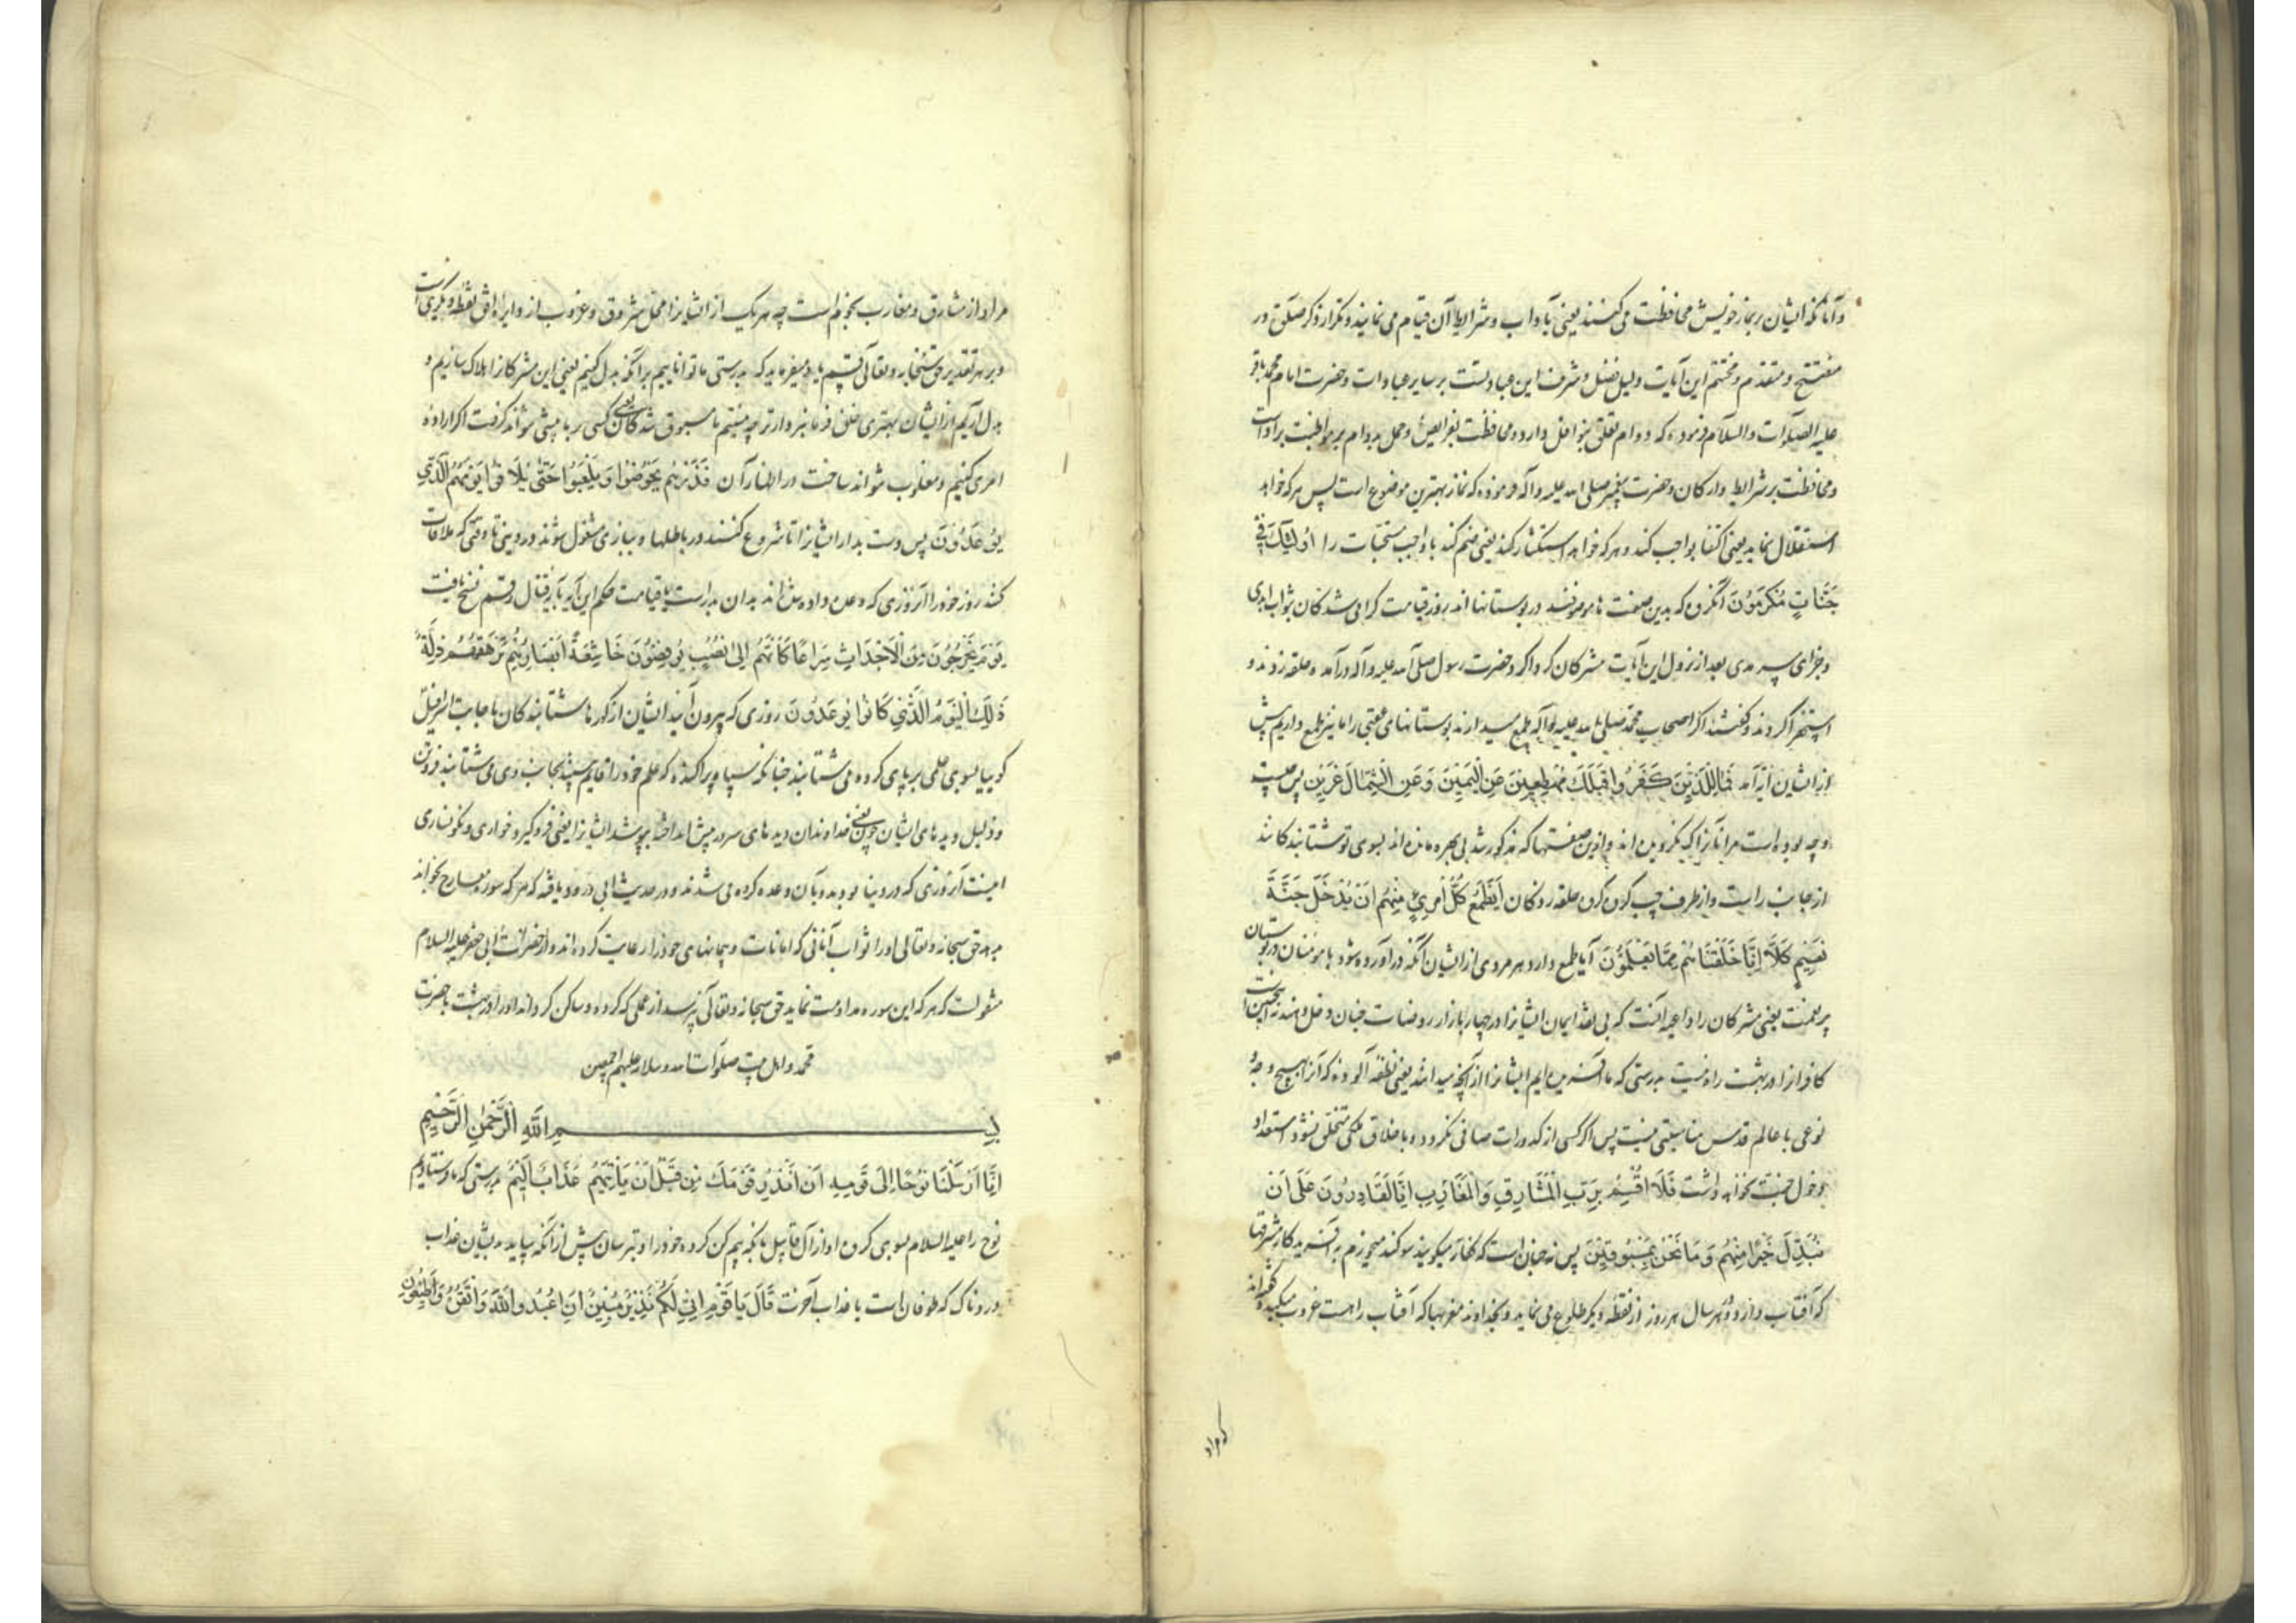 وآنانکه ایشان بر نماز خویش محافظت می‌کنند یعنی بآداب و شرایط آن قیام می نمایند و تکرار ذکر صلوة در
مفتتح و مختتم این آیات دلیل فضل و شرف این عبادتست بر سایر عبادات و حضرت امام محمد باقر
علیه الصلوات والسلام فرموده که دوام تعلق بنوافل دارد و محافظت بفرایض و حمل دوام بر مواظبت بر ادا است
ومحافظت بر شرایط و ارکان و حضرت پیغمبر صلی الله علیه وآله فرموده که نماز بهترین موضوع است پس هر که خواهد
استقلال نماید یعنی اکتفا بواجب کند و هر که خواهد استکثار کند یعنی ضم کند با واجب مستحبات را اُولٰئِكَ فِي
جَنَّاتٍ مُكْرَمُونَ آنگروه که بدین صفت ها موصوفند در بوستانها اند روز قیامت گرامی شدگان بثواب ابدی
وجزای سرمدی بعد از نزول این آیات مشرکان گرداگرد حضرت رسول صلی الله علیه وآله درآمده حلقه زدند و
استهزا کردند و گفتند اگر اصحاب محمد صلی الله علیه وآله طمع میدارند بوستانهای عقبی را ما نیز طمع داریم پیش
از ایشان آیه آمد فَمَالِ الَّذِينَ كَفَرُوا قِبَلَكَ مُهْطِعِينَ عَنِ الْيَمِينِ وَعَنِ الشِّمَالِ عِزِينَ پس چیست
وچه بوده است مر آنانرا که نگرویده اند و ازین صفتها که مذکور شد بی بهره مانده اند بسوی تو شتابندگانند
از جانب راست و از طرف چپ گروه گروه حلقه زدگان اَيَطْمَعُ كُلُّ امْرِئٍ مِنْهُمْ اَنْ يُدْخَلَ جَنَّةَ
نَعِيمٍ كَلَّا اِنَّا خَلَقْنَاهُمْ مِمَّا يَعْلَمُونَ آیا طمع دارد هر مردی از ایشان آنکه درآورده شود با مؤمنان در بوستان
پر نعمت یعنی مشرکان را داعیه آنست که بی نقد ایمان ایشانرا در چهار بازار روضات جنان دخل دهند نه چنین است
کافرانرا در بهشت راه نیست بدرستی که ما آفریده ایم ایشانرا از آنچه میدانند یعنی نطفه آلوده که آنرا بهیچ وجه
نوعی با عالم قدس مناسبتی نیست پس اگر کسی از کدورات صافی نگردد و باخلاق ملکی متخلق نشود استعداد
دخول جنت نخواهد داشت فَلَا اُقْسِمُ بِرَبِّ الْمَشَارِقِ وَالْمَغَارِبِ اِنَّا لَقَادِرُونَ عَلَى اَنْ
نُبَدِّلَ خَيْرًا مِنْهُمْ وَمَا نَحْنُ بِمَسْبُوقِينَ پس نه چنان است که کفار میگویند سوگند میخورم به آفریدگار مشرقها
که آفتاب دارد و هر سال هر روز از نقطه دیگر طلوع می نماید و بخداوند مغربها که آفتاب راهست غروب میکند و گفته اند
که مراد
مراد از مشارق و مغارب نجوم است چه هر یک از ایشانرا محل شروق و غروب از دایره افق نقطه دیگر است
وبر هر تقدیر حق سبحانه و تعالی قسم یاد میفرماید که بدرستی ما تواناییم بر آنکه بدل کنیم یعنی این مشرکانرا هلاک سازیم و
بدل آریم از ایشان بهتری خلق فرمانبردارتر و نیستیم ما مسبوق شدگان یعنی کسی بر ما پیشی نتواند گرفت اگر اراده
امری کنیم و مغلوب نتواند ساخت در اظهار آن فَذَرْهُمْ يَخُوضُوا وَيَلْعَبُوا حَتَّى يُلَاقُوا يَوْمَهُمُ الَّذِي
يُوعَدُونَ پس دست بدار ایشانرا تا شروع کنند در باطلها و ببازی مشغول شوند در دینی تا وقتی که ملاقات
کنند روز خود را آنروزی که وعده داده شده اند بدان بدر است یا قیامت حکم این آیه بآیه قتال رقم نسخ یافت
يَوْمَ يَخْرُجُونَ مِنَ الْاَجْدَاثِ سِرَاعًا كَاَنَّهُمْ اِلَى نُصُبٍ يُوفِضُونَ خَاشِعَةً اَبْصَارُهُمْ تَرْهَقُهُمْ ذِلَّةٌ
ذٰلِكَ الْيَوْمُ الَّذِي كَانُوا يُوعَدُونَ روزی که بیرون آیند ایشان از گورها شتابندگان باجابت اسرافیل
گوییا بسوی علمی برپای کرده می شتابند چنانکه سپاه پراکنده که علم خود را قایم بینند بجانب وی می شتابند فروتن
وذلیل دیدهای ایشان یعنی خداوندان دیدهای سر در پیش انداخته بپوشد ایشانرا یعنی فروگیرد خواری و نگونساری
اینست آنروزی که در دنیا بودند و بآن وعده کرده می شدند و در حدیث ابی ورود یافته که هر که سوره معارج بخواند
بدهد حق سبحانه و تعالی اورا ثواب آنانی که امانات و پیمانهای خود را رعایت کرده اند و از حضرت ابی جعفر علیه السلام
منقولست که هر که این سوره مداومت نماید حق سبحانه و تعالی نپرسد از عملی که کرده و ساکن گرداند او را در بهشت با حضرت
محمد و اهل بیت صلوات الله وسلامه علیهم اجمعین
بِسْمِ اللّٰهِ الرَّحْمٰنِ الرَّحِيمِ
اِنَّا اَرْسَلْنَا نُوحًا اِلَى قَوْمِهِ اَنْ اَنْذِرْ قَوْمَكَ مِنْ قَبْلِ اَنْ يَأْتِيَهُمْ عَذَابٌ اَلِيمٌ بدرستی که ما فرستادیم
نوح را علیه السلام بسوی گروه او از آل قابیل بآنکه بیم کن گروه خود را و بترسان پیش از آنکه بیاید بدیشان عذاب
دردناک که طوفان است یا عذاب آخرت قَالَ يَا قَوْمِ اِنِّي لَكُمْ نَذِيرٌ مُبِينٌ اَنِ اعْبُدُوا اللّٰهَ وَاتَّقُوهُ وَاَطِيعُونِ